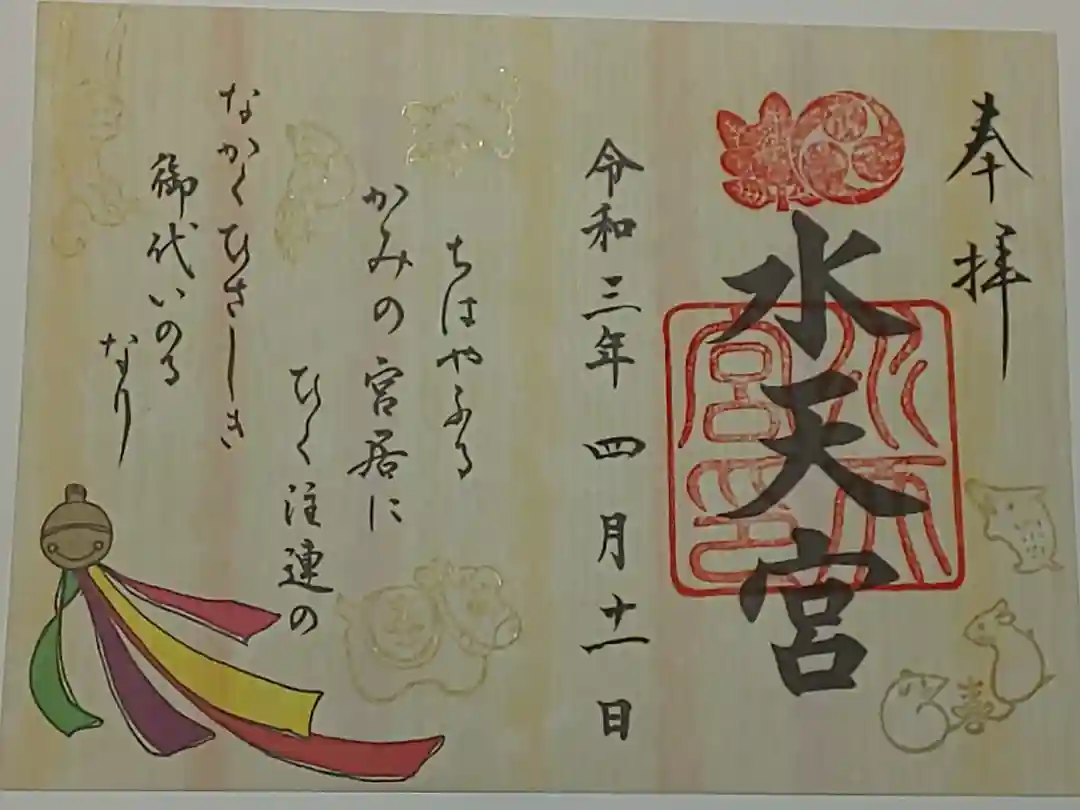 奉拝
水天宮
令和三年 四月十一日
ちはやふる
かみの宮居に
ひく注連の
なかくひさしき
御代いのる
なり
水天宮印
喜